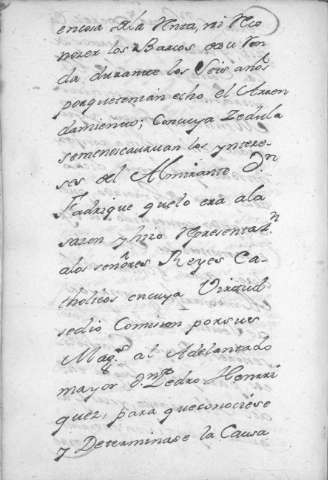 encusa de la Renta, ni Reco
nozer los Barcos de su Ron
da durante los Seis años
porque tenian echo el Arren
damiento; Con cuya Zedula
se menoscavavan los yntere-
ses del Almirante Dn
Fadrique que lo era ala
sazon y hizo Representasn
alos señores Reyes Ca-
tholicos en cuya Virtud
se dio Comision por sus
Mags al Adelantado
mayor dn Pedro Henrri
quez, para que conociese
y Determinase la Causa